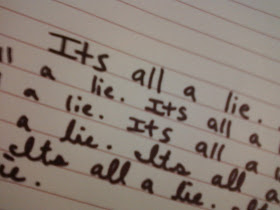 Its all a lie.
all a lie. Its all a l
a lie. Its all a
a lie. Its all a
Its all a lie.
lie.